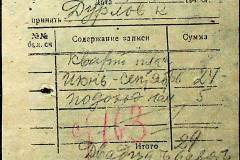 Дурлов К
принять
№№ Содержание записи Сумма
бал. сч
Кварт плат
Июнь-Сентябрь 24
Подоход нал 5
4763
Итого 29
Двадцать девять